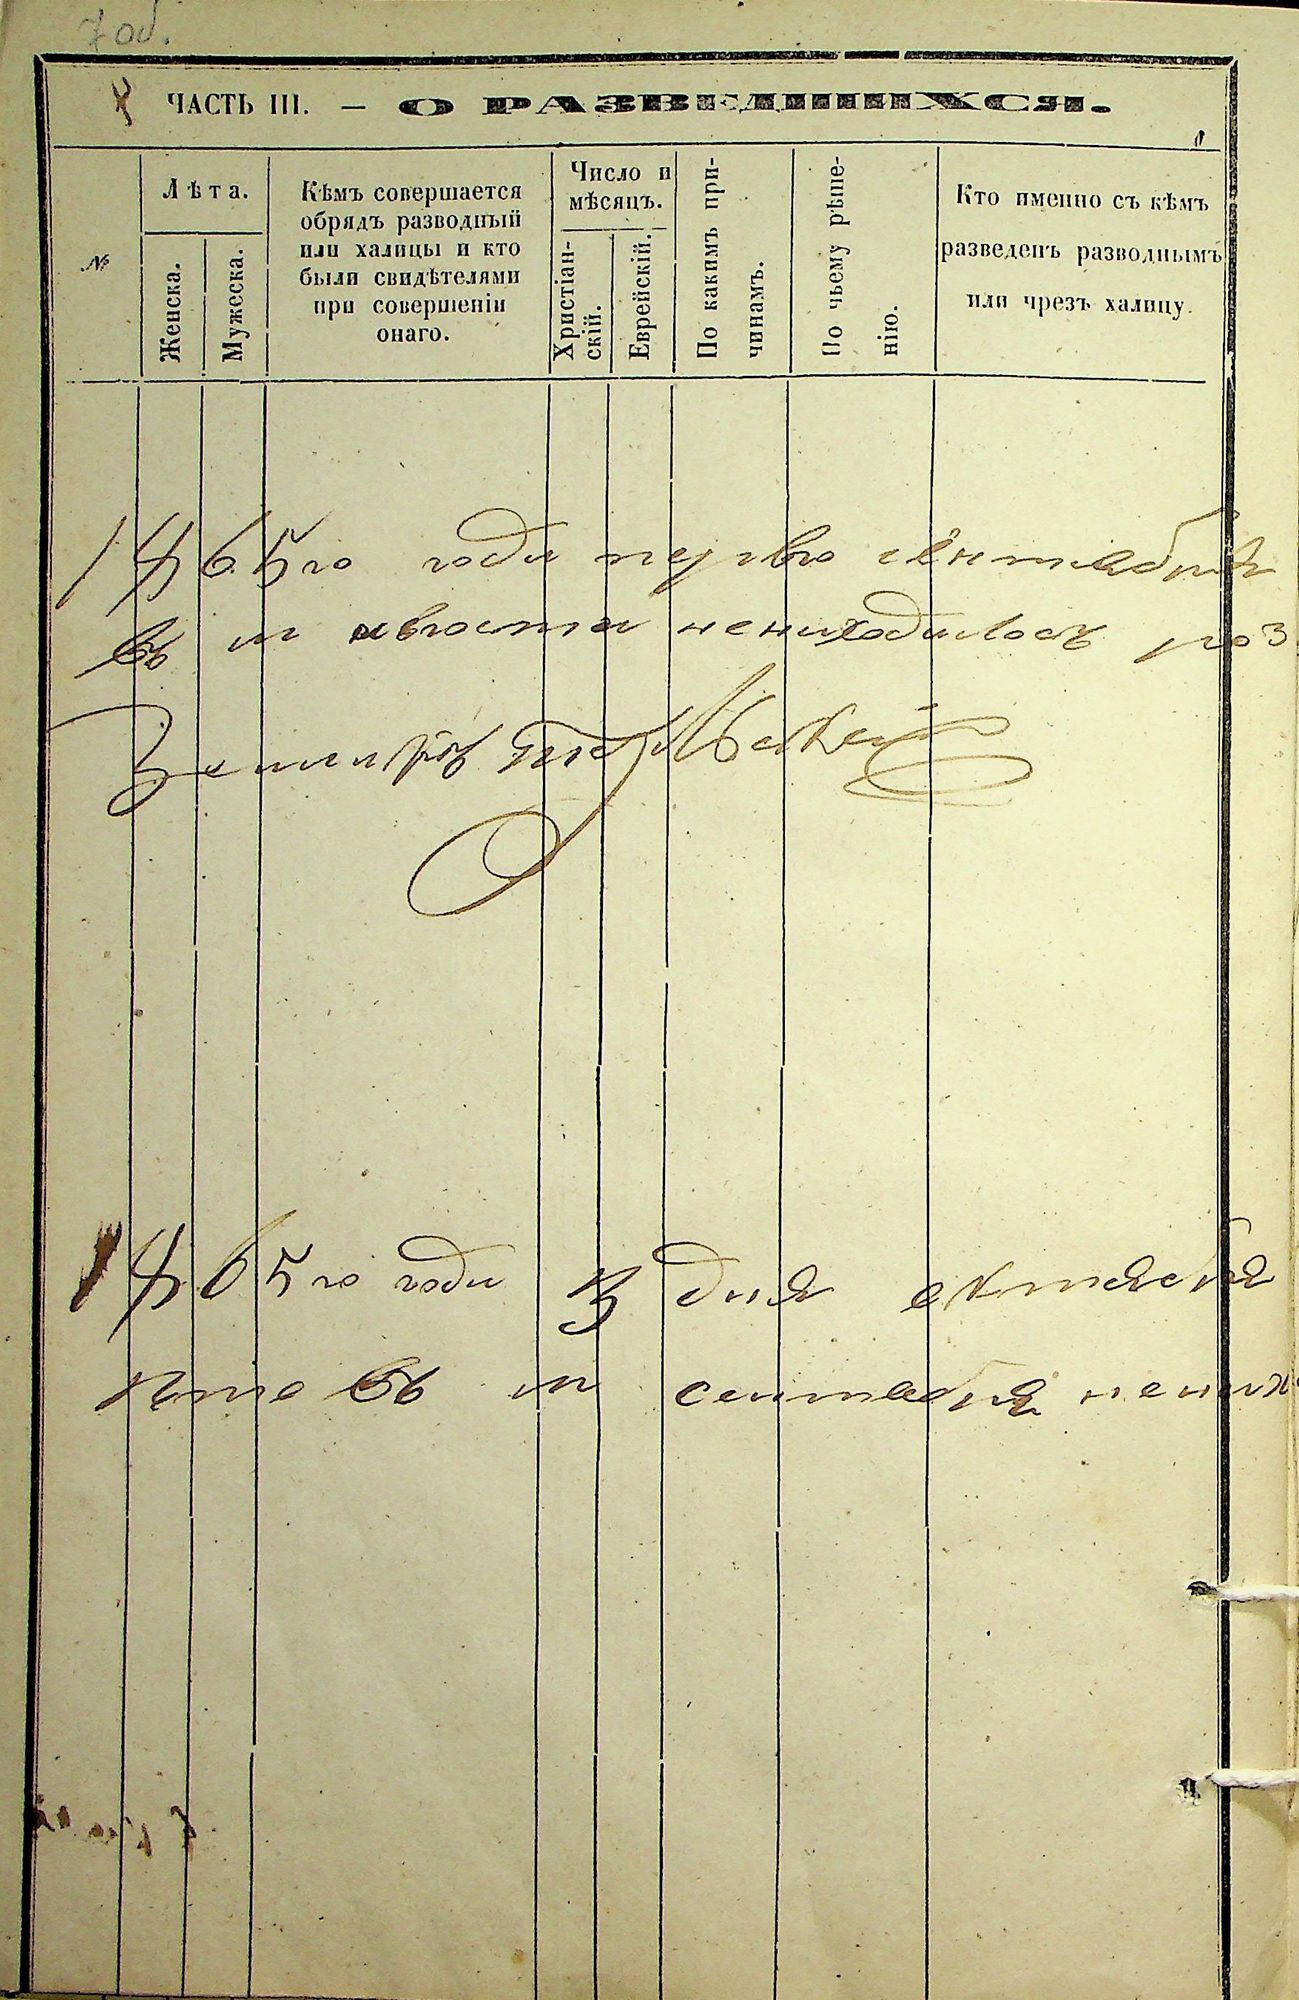 7 об.
ЧАСТЬ III. — О РАЗВЕДШИХСЯ.
№
Лѣта.
Женска.
Мужеска.
Кѣмъ совершается
обрядъ разводный
или халицы и кто
были свидѣтелями
при совершеніи
онаго.
Число и
мѣсяцъ.
Христіан-
скій.
Еврейскій.
По какимъ при-
чинамъ.
По чьему рѣше-
нію.
Кто именно съ кѣмъ
разведенъ разводнымъ
или чрезъ халицу.
1865го года перво сентебря
въ м августа ненаходилось роз
1865го года 3 дня октяебря
что въ м сентебря